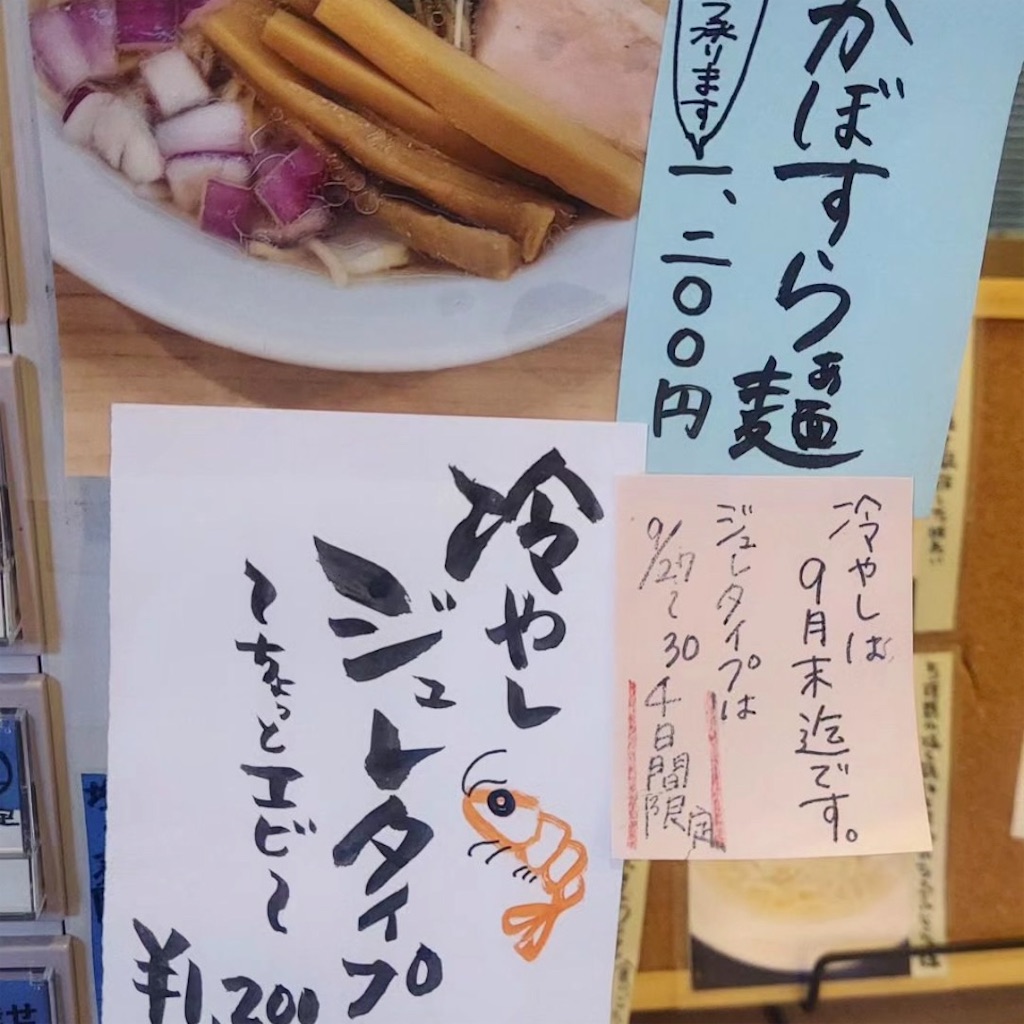 かぼすらぁ麺
承ります
一、二〇〇円
冷やし
ジュレタイプ
～ちょっとエビ～
¥1,200
冷やしは
9月末迄です。
ジュレタイプは
9/27～30
4日間限定